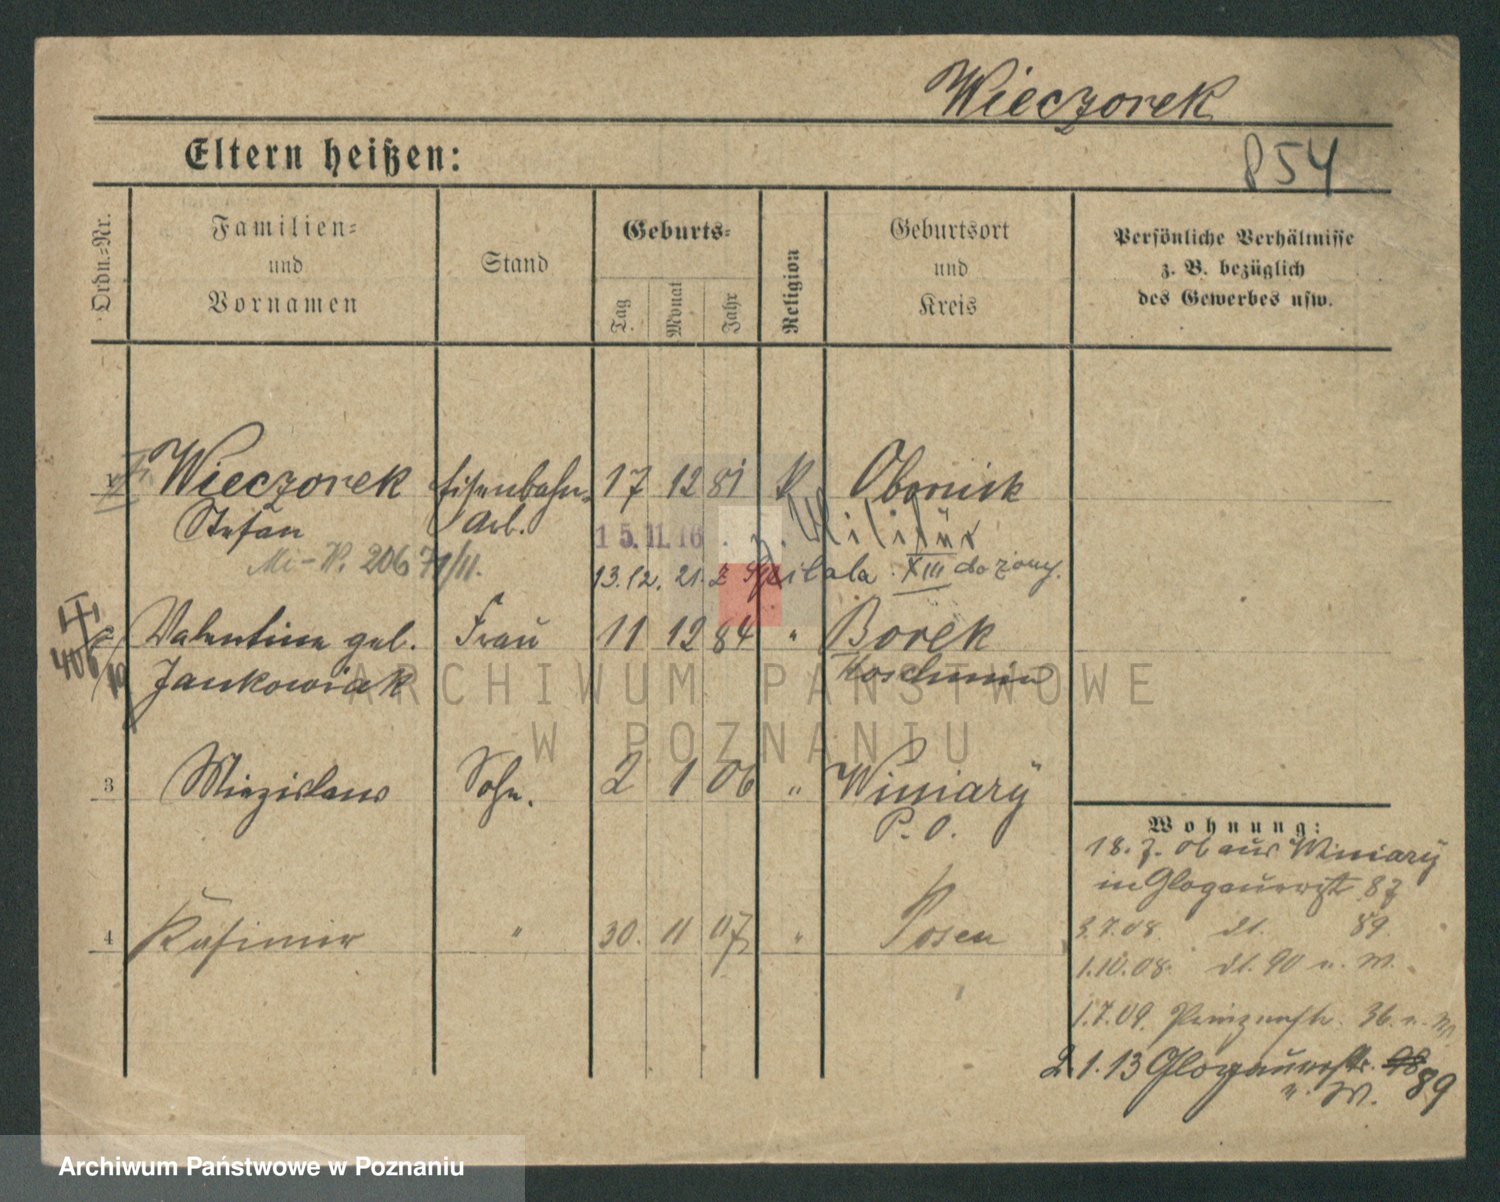 Wieczorek
854
Eltern heißen:
Ordn.-Nr.
Familien-
und
Vornamen
Stand
Geburts-
Tag
Monat
Jahr
Religion
Geburtsort
und
Kreis
Persönliche Verhältnisse
z. B. bezüglich
des Gewerbes usw.
1 Wieczorek Eisenbahn- 17 12 81 k Obornik
Stefan Arb. 15.11.16 z. Militär
Mi-P. 206 71/11. 13.12.21. z Szpitala XIII do żony.
2 Valentine geb. Frau 11 12 84 " Borek
406/19 Jankowiak Koschmin
ARCHIWUM PAŃSTWOWE
W POZNANIU
3 Miezislaus Sohn. 2 1 06 " Winiary
P. O.
Wohnung:
18. 7. 06 aus Winiary
in Glogauerstr 87
4 Kasimir " 30. 11 07 " Posen
3.7.08. dt. 89.
1.10.08. dt. 90 u. M.
1.7.09. Prinzenstr. 36. u. M
2.1.13 Glogauerstr. 98 89
u. M.
Archiwum Państwowe w Poznaniu